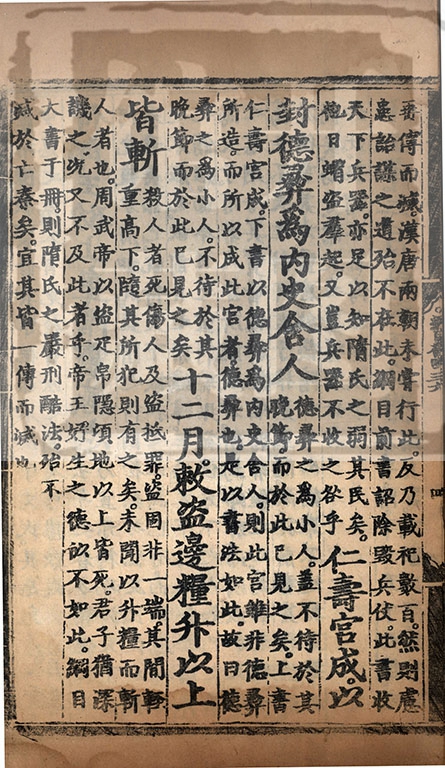 傳而滅。漢唐兩朝未嘗行此。反乃載祀數百。然則慮
患詒謀之遺殆不在此。綱目前書詔除毀兵仗。此書收
天下兵器。亦足以知隋氏之弱其民矣。
他日蝟盜羣起。又豈兵器不收之咎乎
仁壽宮成。以
封德彝爲内史舍人
德彝之爲小人。蓋不待於其
晚節而於此已見之矣。上書
仁壽宮成。下書以德彝爲内史舍人。則此宮雖非德彝
所造。而所以成此宮者德彝也。是以書法如此。故曰德
彝之爲小人。不待於其
晚節而於此已見之矣
十二月。敕盜邊糧升以上
皆斬
殺人者死傷人及盜抵罪。盜固非一端。其間輕
重高下。隨其所犯則有之矣。未聞以升糧而斬
人者也。周武帝以盜疋帛隱頃地以上皆死。君子猶深
譏之。况又不及此者乎。帝王好生之德。似不如此。綱目
大書于冊。則隋氏之嚴刑酷法。殆不
減於亡秦矣。宜其皆一傳而滅也